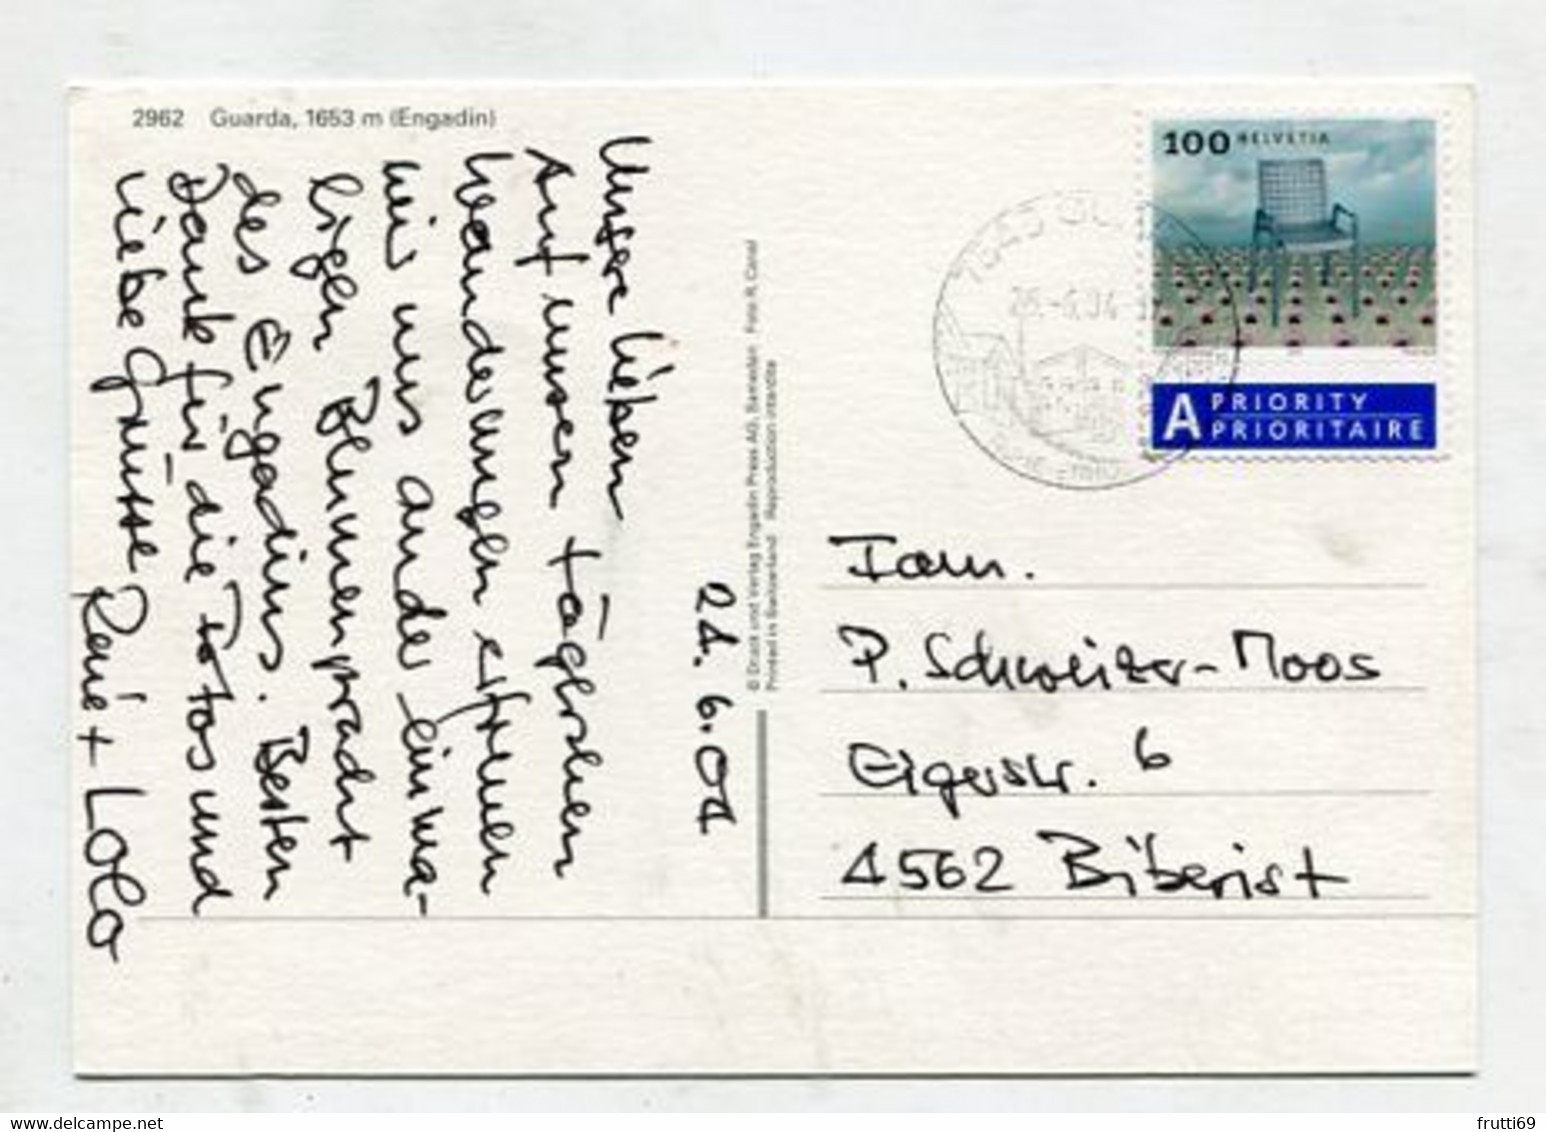 2962 Guarda, 1653 m (Engadin)
24. 6. 04
Unsere lieben
Auf unseren täglichen
Wanderungen erfreuen
wir uns an der einma-
ligen Blumenpracht
des Engadins. Besten
Dank für die Fotos und
Liebe Grüsse
René + Lola
© Druck und Verlag Engadin Press AG, Samedan Foto R. Canal
Printed in Switzerland Reproduction interdite
100 HELVETIA
A PRIORITY
PRIORITAIRE
Fam.
P. Schweizer-Moos
Eigerstr. 6
4562 Biberist
frutti69